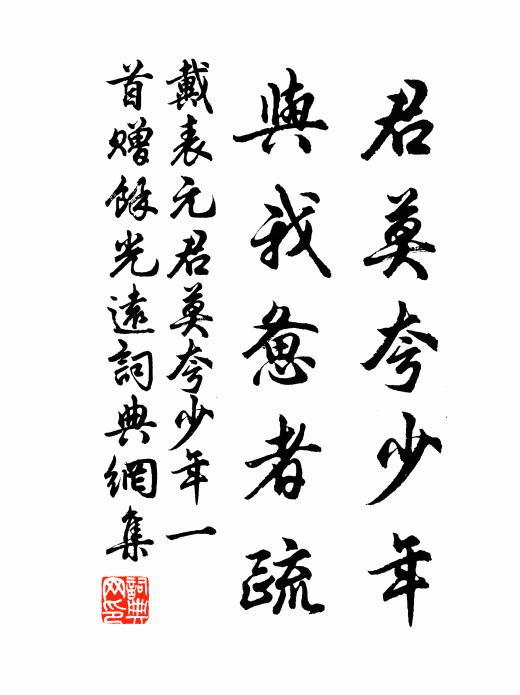 君莫夸少年
與我惫者疏
戴表元君莫夸少年一
首贈餘光遠詞典網集
詞典网印